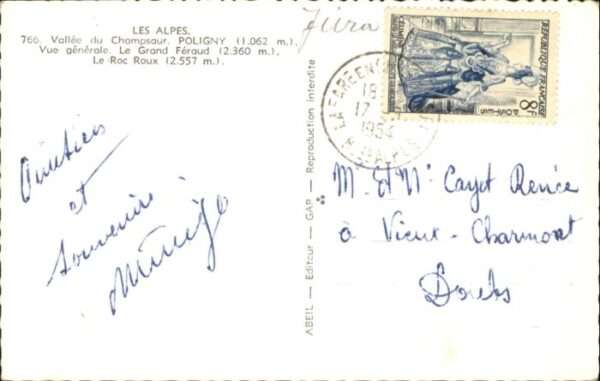 LES ALPES.
766. Vallée du Champsaur. POLIGNY (1.062 m.).
Vue générale. Le Grand Féraud (2.360 m.).
Le Roc Roux (2.557 m.).
Jura
REPUBLIQUE FRANÇAISE
8F
LA FARE EN
17
1954
Amitiés
et
souvenirs
ABEIL — Editeur — GAP — Reproduction interdite
M. et Me Cayet Renée
à Vieux-Charmont
Doubs